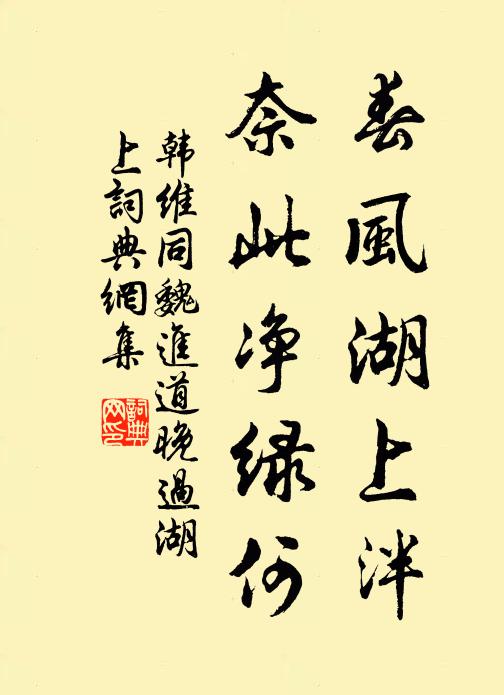 春風湖上泮
奈此净緑何
韩維同魏進道晚過湖
上詞典網集
詞典
网印